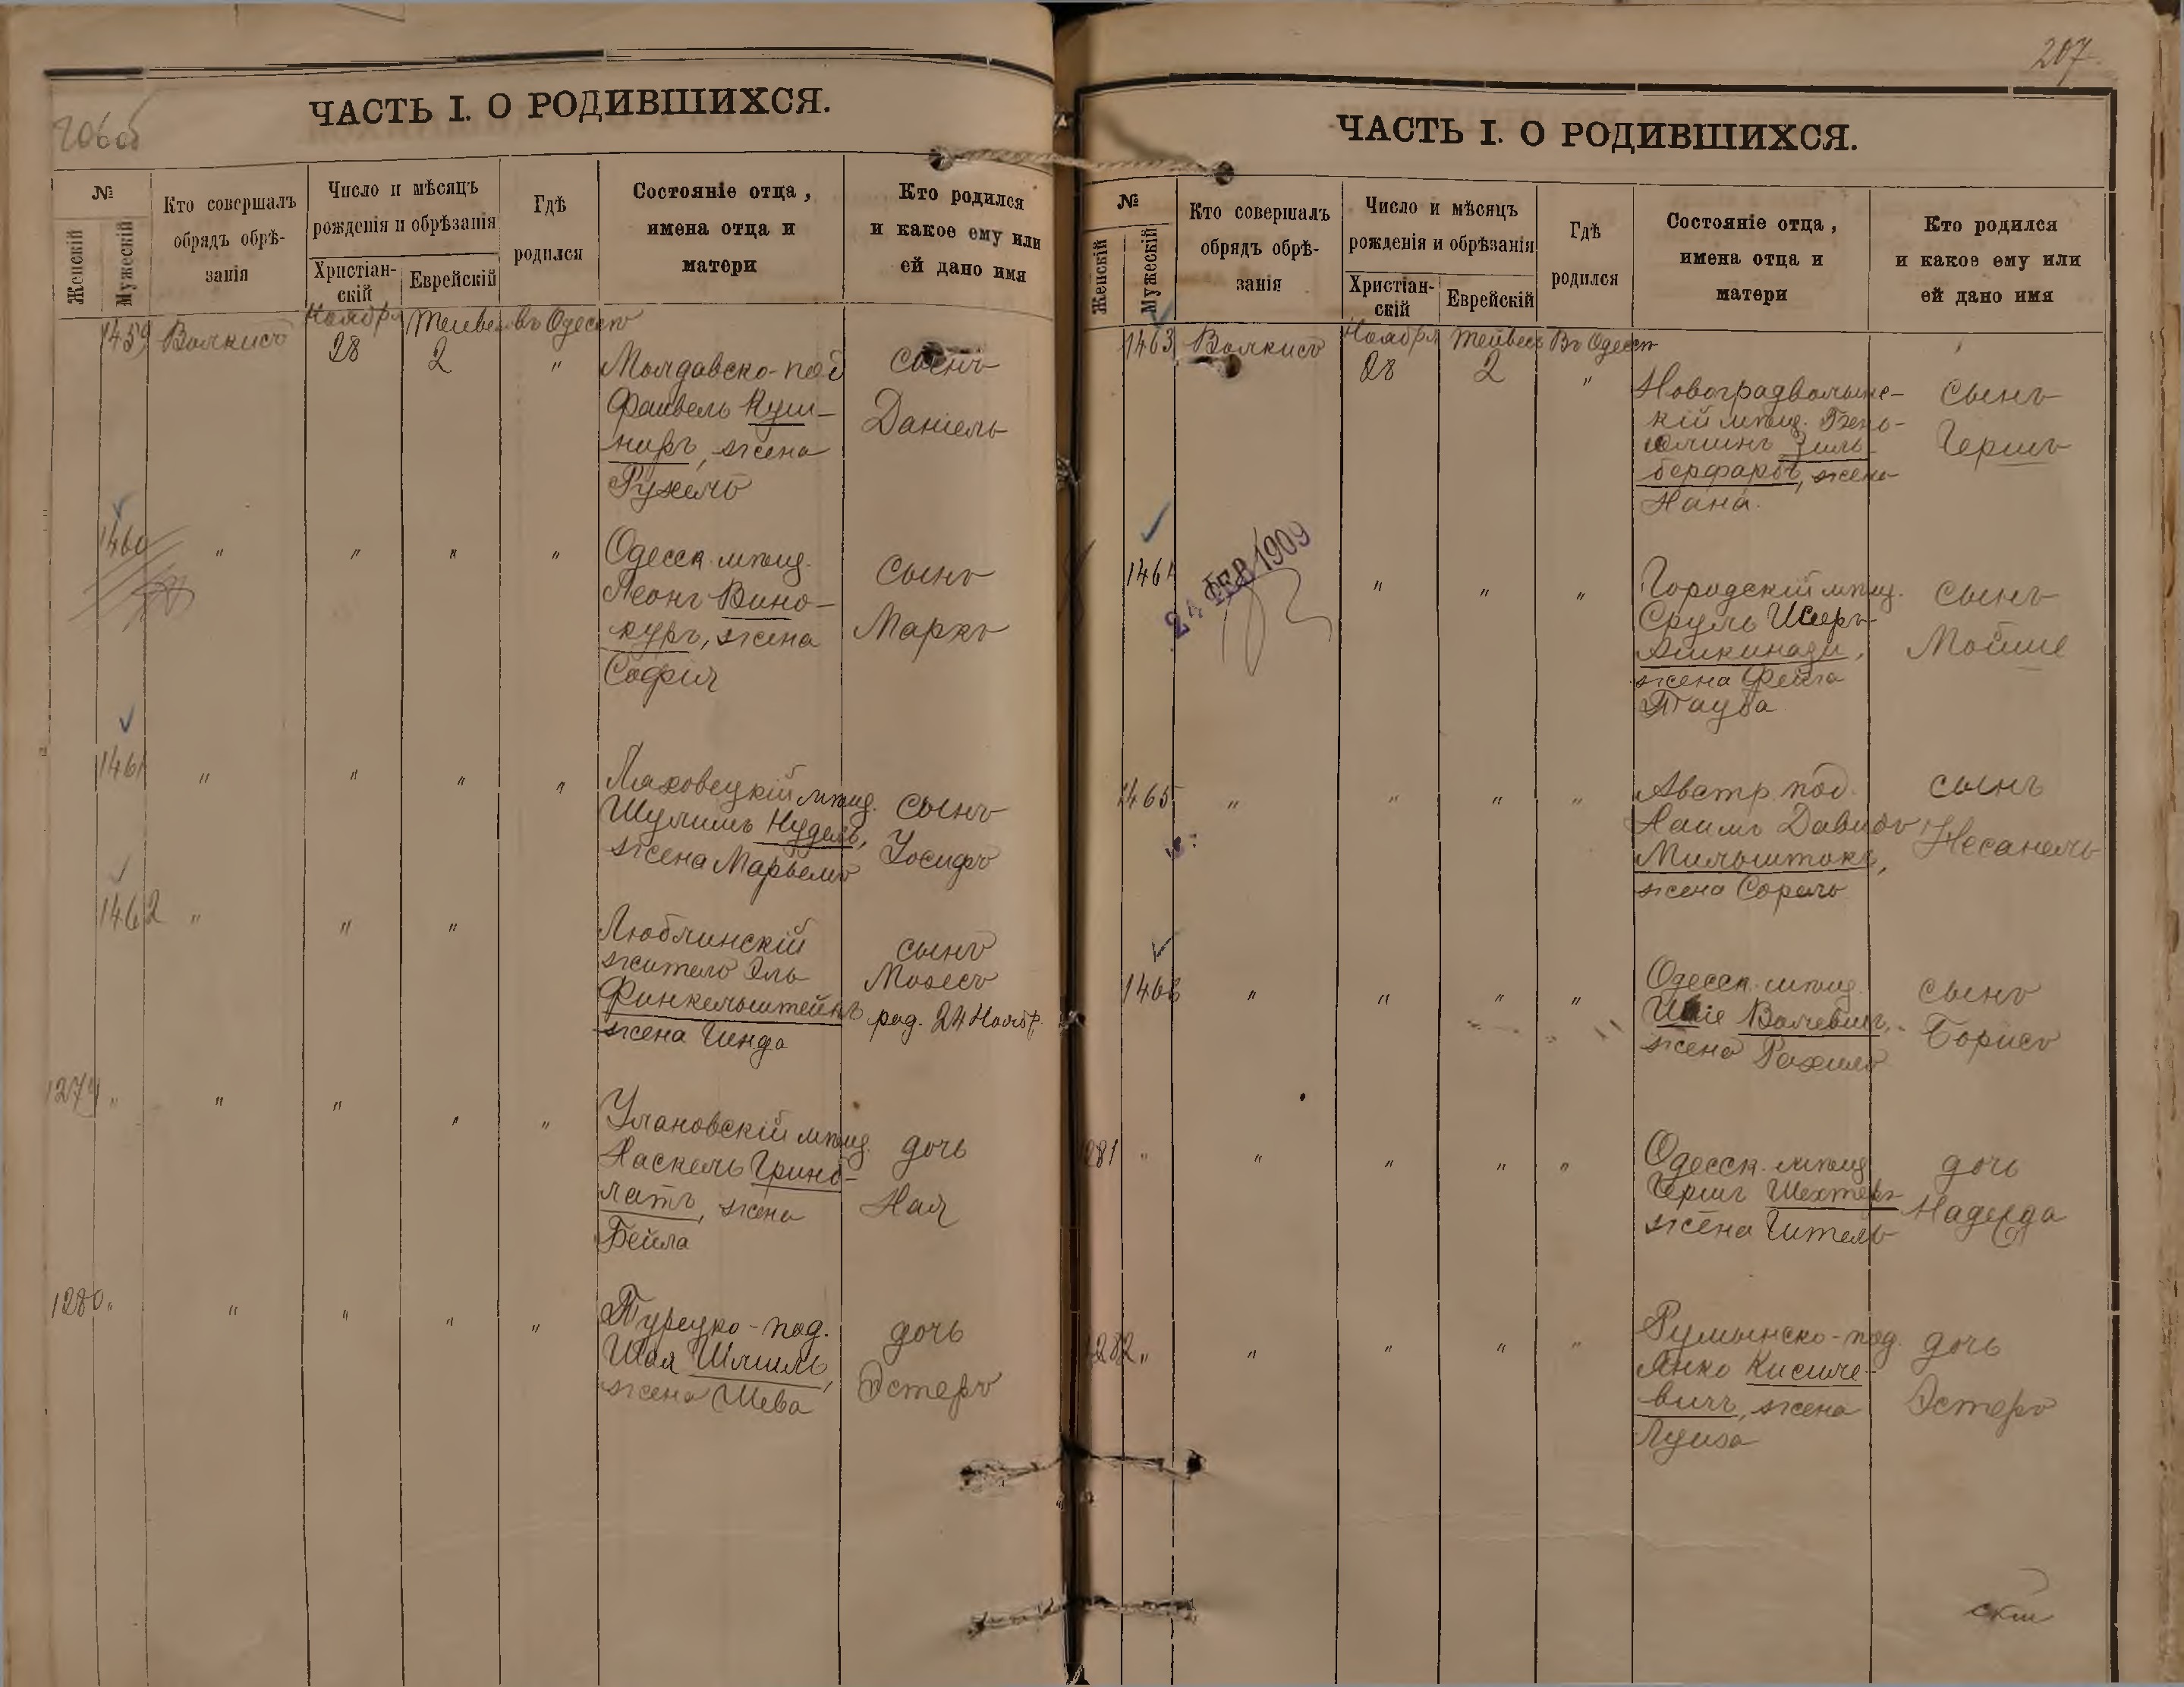 206об
ЧАСТЬ I. О РОДИВШИХСЯ.
№
Женскій
Мужескій
Кто совершалъ
обрядъ обрѣ-
занія
Число и мѣсяцъ
рожденія и обрѣзанія
Христіан-
скій
Еврейскій
Гдѣ
родился
Состояніе отца,
имена отца и
матери
Кто родился
и какое ему или
ей дано имя
1459 Волкисъ Ноября Тейвес въ Одессѣ
28 2 " Молдавско-под сынъ
Файвель Куш-
ниръ, жена Даніель
Рухель
1460 " " " " Одесск. мѣщ. сынъ
Леонъ Вино-
куръ, жена Маркъ
Софія
1461 " " " " Ляховецкій мѣщ. сынъ
Шулимъ Нудель, Іосифъ
жена Марьемъ
1462 " " " Люблинскій сынъ
житель Эль Мозесъ
Финкельштейнъ род. 24 Нояб.
жена Гинда
1279 " " " " " Улановскій мѣщ. дочь
Хаскель Грино-
латъ, жена Хая
Бейла
1280 " " " " " Турецко-под. дочь
Шая Шмиль,
жена Шева Эстеръ
207.
ЧАСТЬ I. О РОДИВШИХСЯ.
№
Женскій
Мужескій
Кто совершалъ
обрядъ обрѣ-
занія
Число и мѣсяцъ
рожденія и обрѣзанія
Христіан-
скій
Еврейскій
Гдѣ
родился
Состояніе отца,
имена отца и
матери
Кто родился
и какое ему или
ей дано имя
1463 Волкисъ Ноября Тейвес Въ Одессѣ
28 2 " Новоградволынс-
кій мѣщ. сынъ
Зиль Гершъ
берфарбъ, жена
Хана.
1464 24 ФЕВ 1909 " " " Городскій мѣщ. сынъ
Сруль Шеръ
Ашкинази, Мойше
жена Фейга
Тауба
1465 " " " " Австр. под. сынъ
Хаимъ Давидъ Несанель
Мильштокъ,
жена Сорель
1466 " " " " Одесск. мѣщ. сынъ
Шаіе Валевичъ, Борисъ
жена Рахиль
1281 " " " " " Одесск. мѣщ. дочь
Гершъ Шехтеръ Надежда
жена Гитель
1282 " " " " " Румынско-под. дочь
Янко Кисиле-
вичъ, жена Эстеръ
Луиза